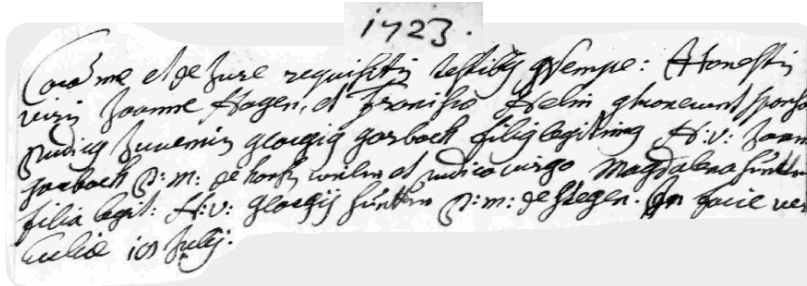 1723.
Coram me et de Jure requisitis testibus nempe: Honestis
viris Joanne Hagen, et Francisco contraxerunt sponsal
pudicus Juvenis georgius garbach filius legitimus H: v: Joann
garbach p: m: de et pudica virgo Magdalena
filia legit: H: v: georgij p: m: de Stegen. In facie vero
Ecclesiæ 10 Julij.